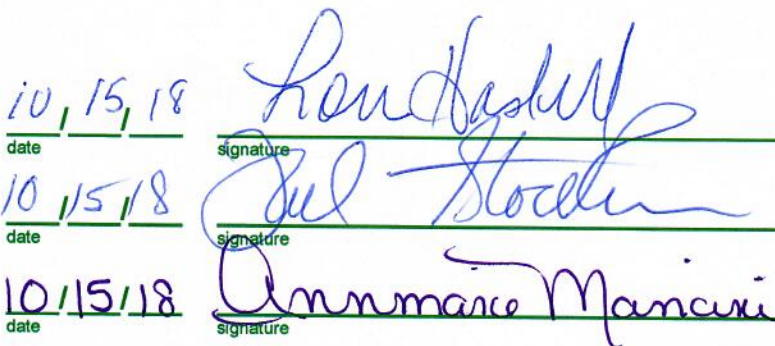 10/15/18 Lou Haskell
date signature
10/15/18
date signature
10/15/18 Annmarie Mancini
date signature